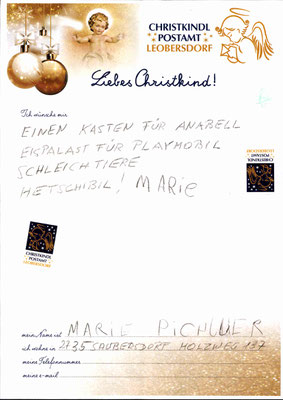 CHRISTKINDL
POSTAMT
LEOBERSDORF
Liebes Christkind!
Ich wünsche mir
EINEN KASTEN FÜR ANABELL
EISPALAST FÜR PLAYMOBIL
SCHLEICHTIERE
HETSCHIBIL! MARIE
CHRISTKINDL
POSTAMT
LEOBERSDORF
CHRISTKINDL
POSTAMT
LEOBERSDORF
mein Name ist MARIE PICHLER
ich wohne in 2735 SAUBERSDORF HOLZWEG 137
meine Telefonnummer
meine e-mail